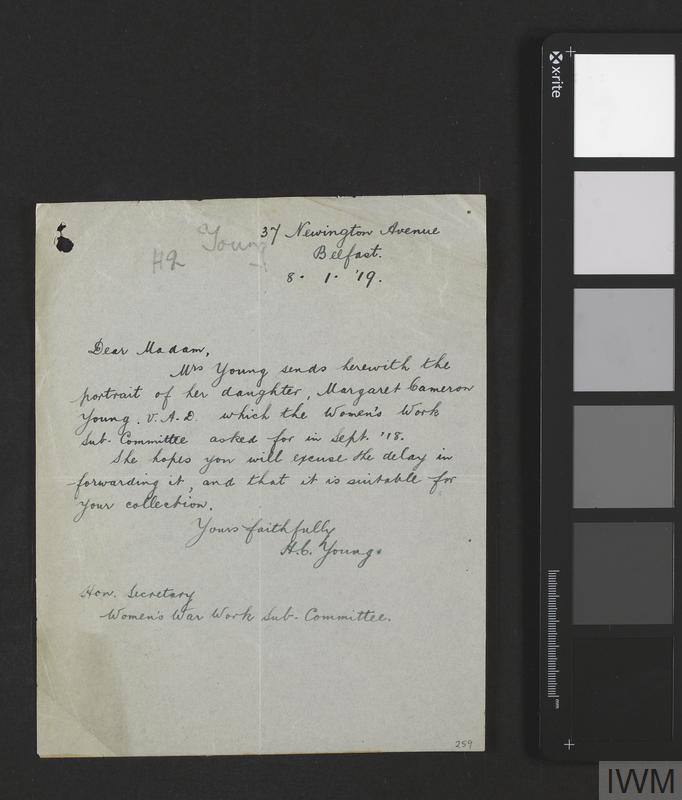 37 Newington Avenue
Belfast.
8. 1. '19.
Young
H2
Dear Madam,
Mrs Young sends herewith the
portrait of her daughter, Margaret Cameron
Young. V.A.D. which the Women's Work
Sub-Committee asked for in Sept. '18.
She hopes you will excuse the delay in
forwarding it, and that it is suitable for
your collection.
Yours faithfully
H.C. Young.
Hon. Secretary
Women's War Work Sub-Committee.
259
x-rite
mm
IWM